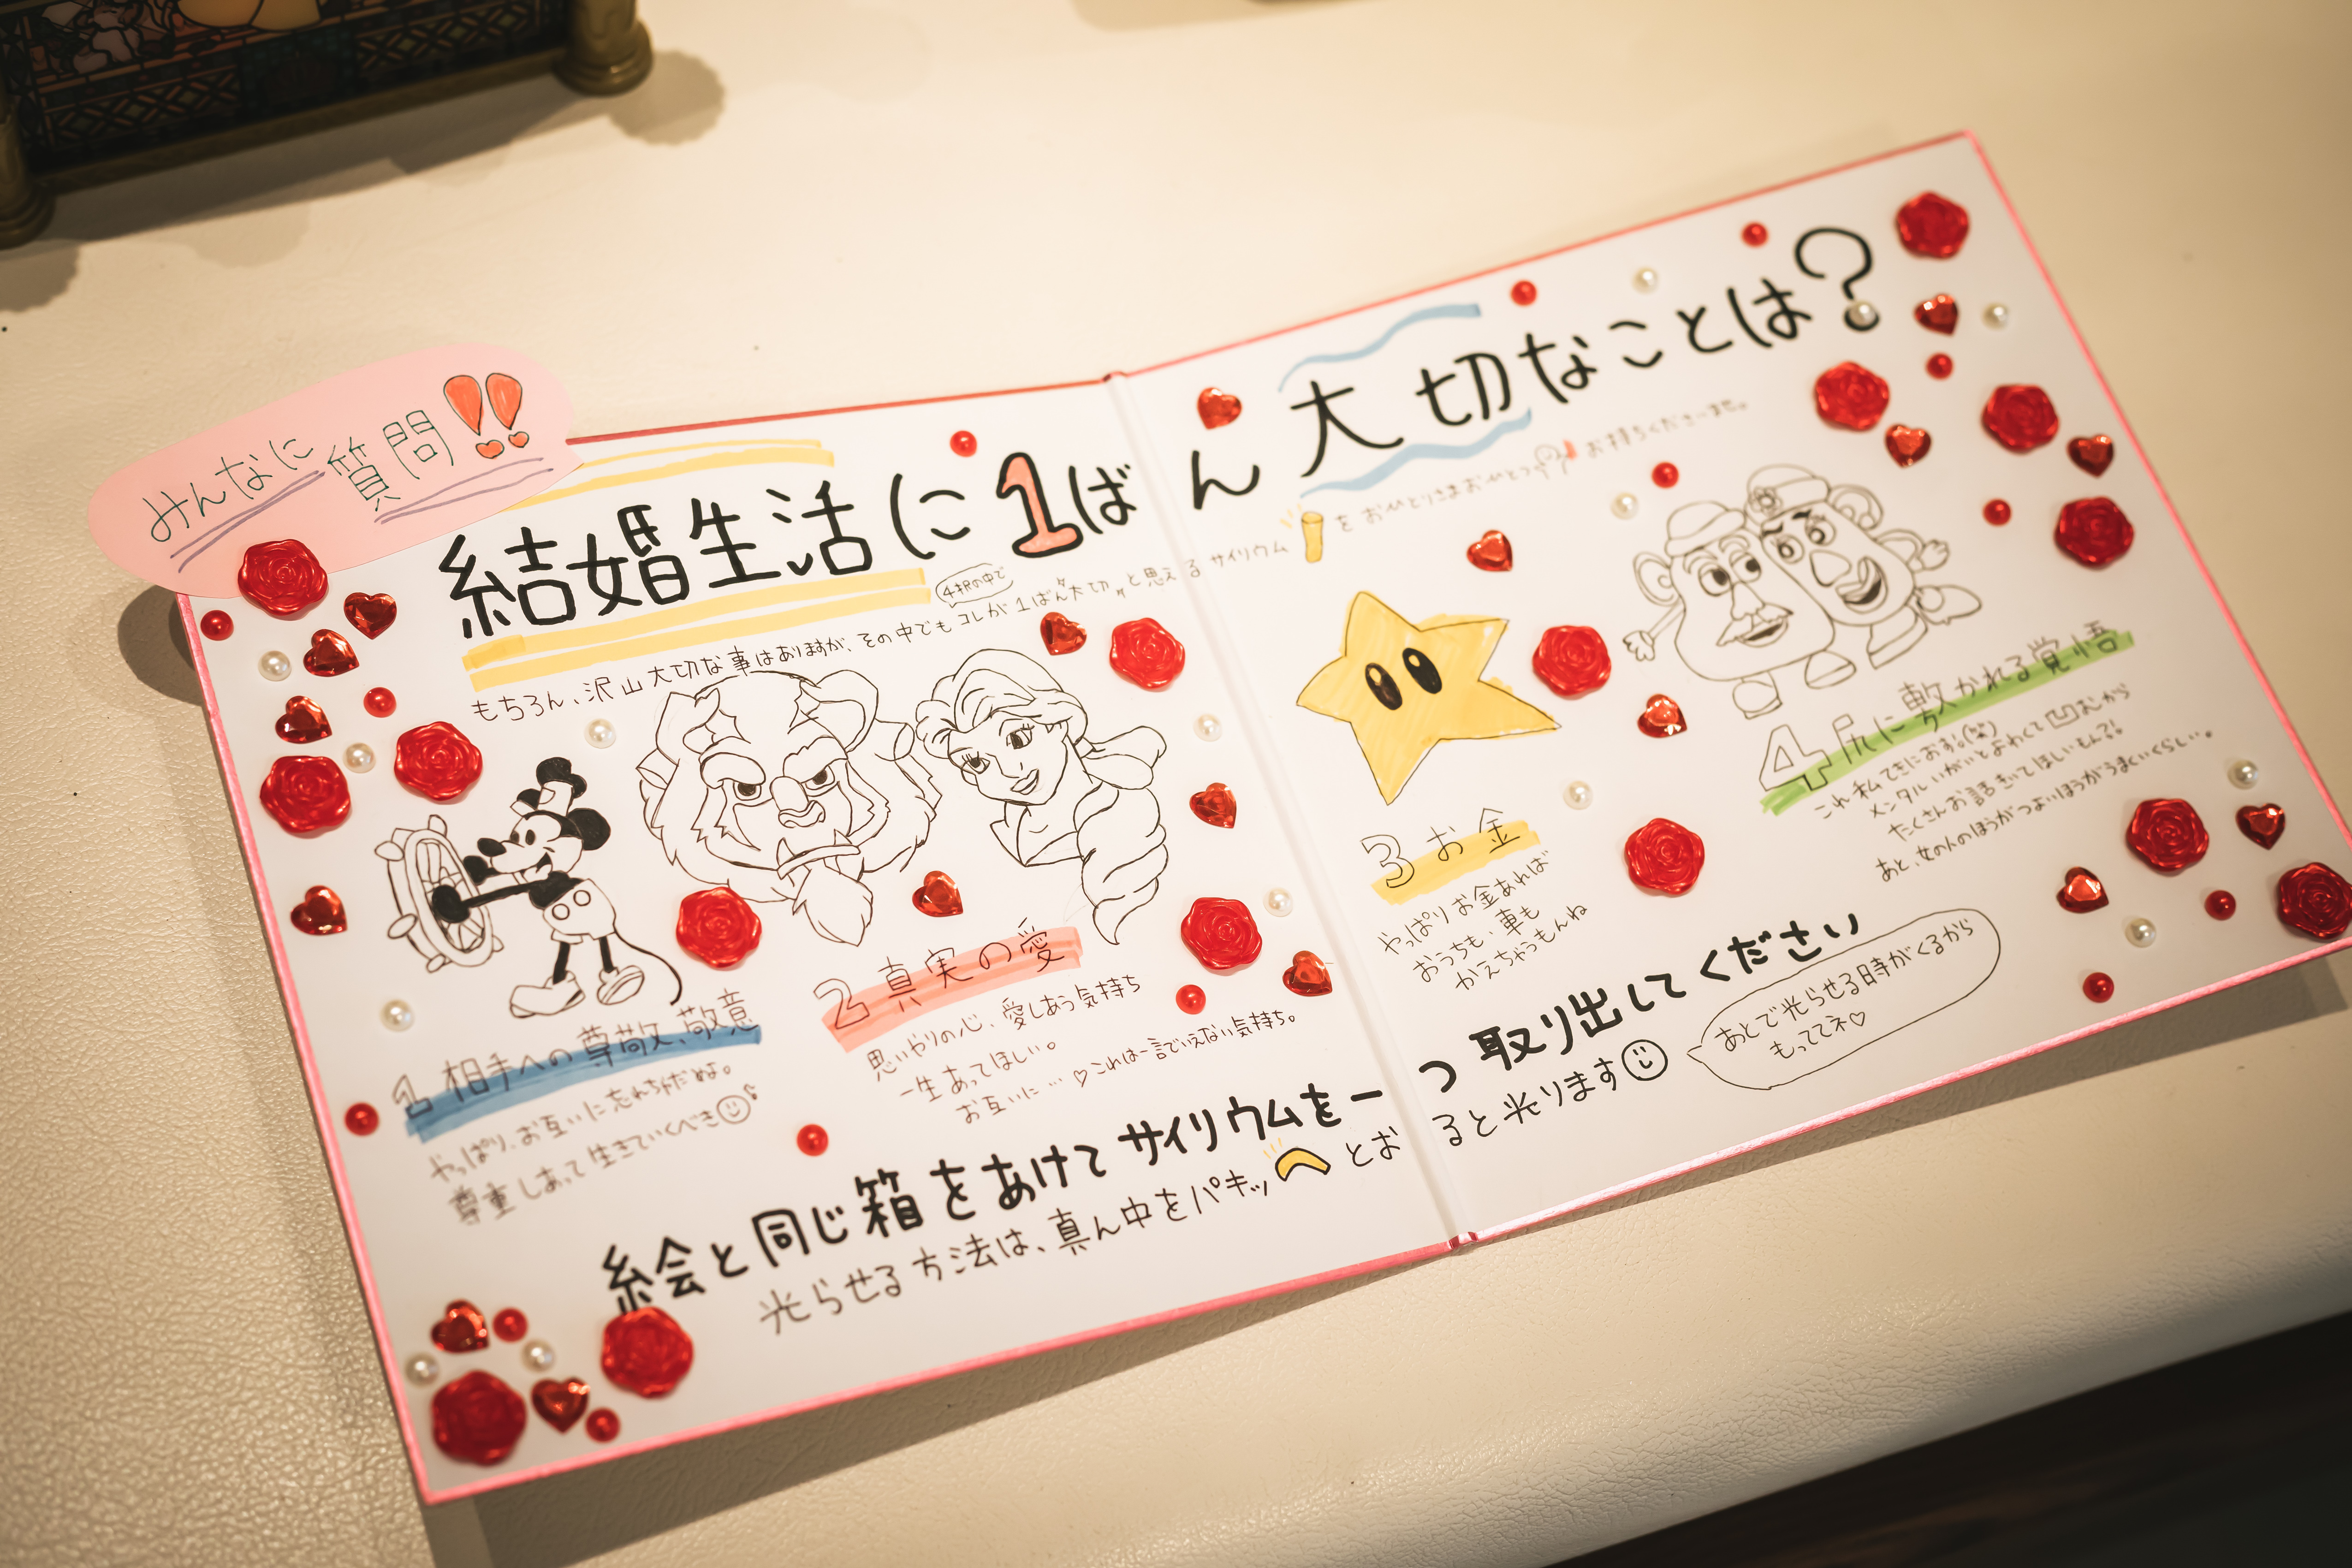 みんなに質問!!
結婚生活に1ばん大切なことは?
もちろん、沢山大切な事はありますが、その中でもコレが1ばん〝大切〟と思えるサイリウムをおひとりさまおひとつお持ちくださいませ。
4択の中で
1 相手への尊敬、敬意
やっぱり、お互いに忘れちゃだめよ。
尊重しあって生きていくべき
2 真実の愛
思いやりの心、愛しあう気持ち
一生あってほしい。
お互いに…♡これは一言でいえない気持ち。
3 お金
やっぱりお金あれば
おうちも、車も
かえちゃうもんね
4 尻に敷かれる覚悟
これ私てきにおす。(笑)
メンタルいがいとよわくて凹むから
たくさんお話きいてほしいもん?!
あと、女の人のほうがつよいほうがうまくいくらしい。
絵と同じ箱をあけてサイリウムを一つ取り出してください
光らせる方法は、真ん中をパキッとおると光ります
あとで光らせる時がくるから
もっててネ♡